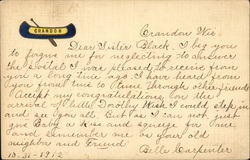 CRANDON
Crandon Wis.
Dear Sister Black. I beg you
to forgive me for neglecting to answer
the postal I was pleased to receive from
you a long time ago. I have heard from
you from time to time through other friends
Accept my congratulations on the
arrival of little Dorothy. Wish I could step in
and see you all. But as I can not, just
give Baby a kiss and squeeze for me
and remember me as your old
neighbor and friend
Belle Carpenter
31-1912